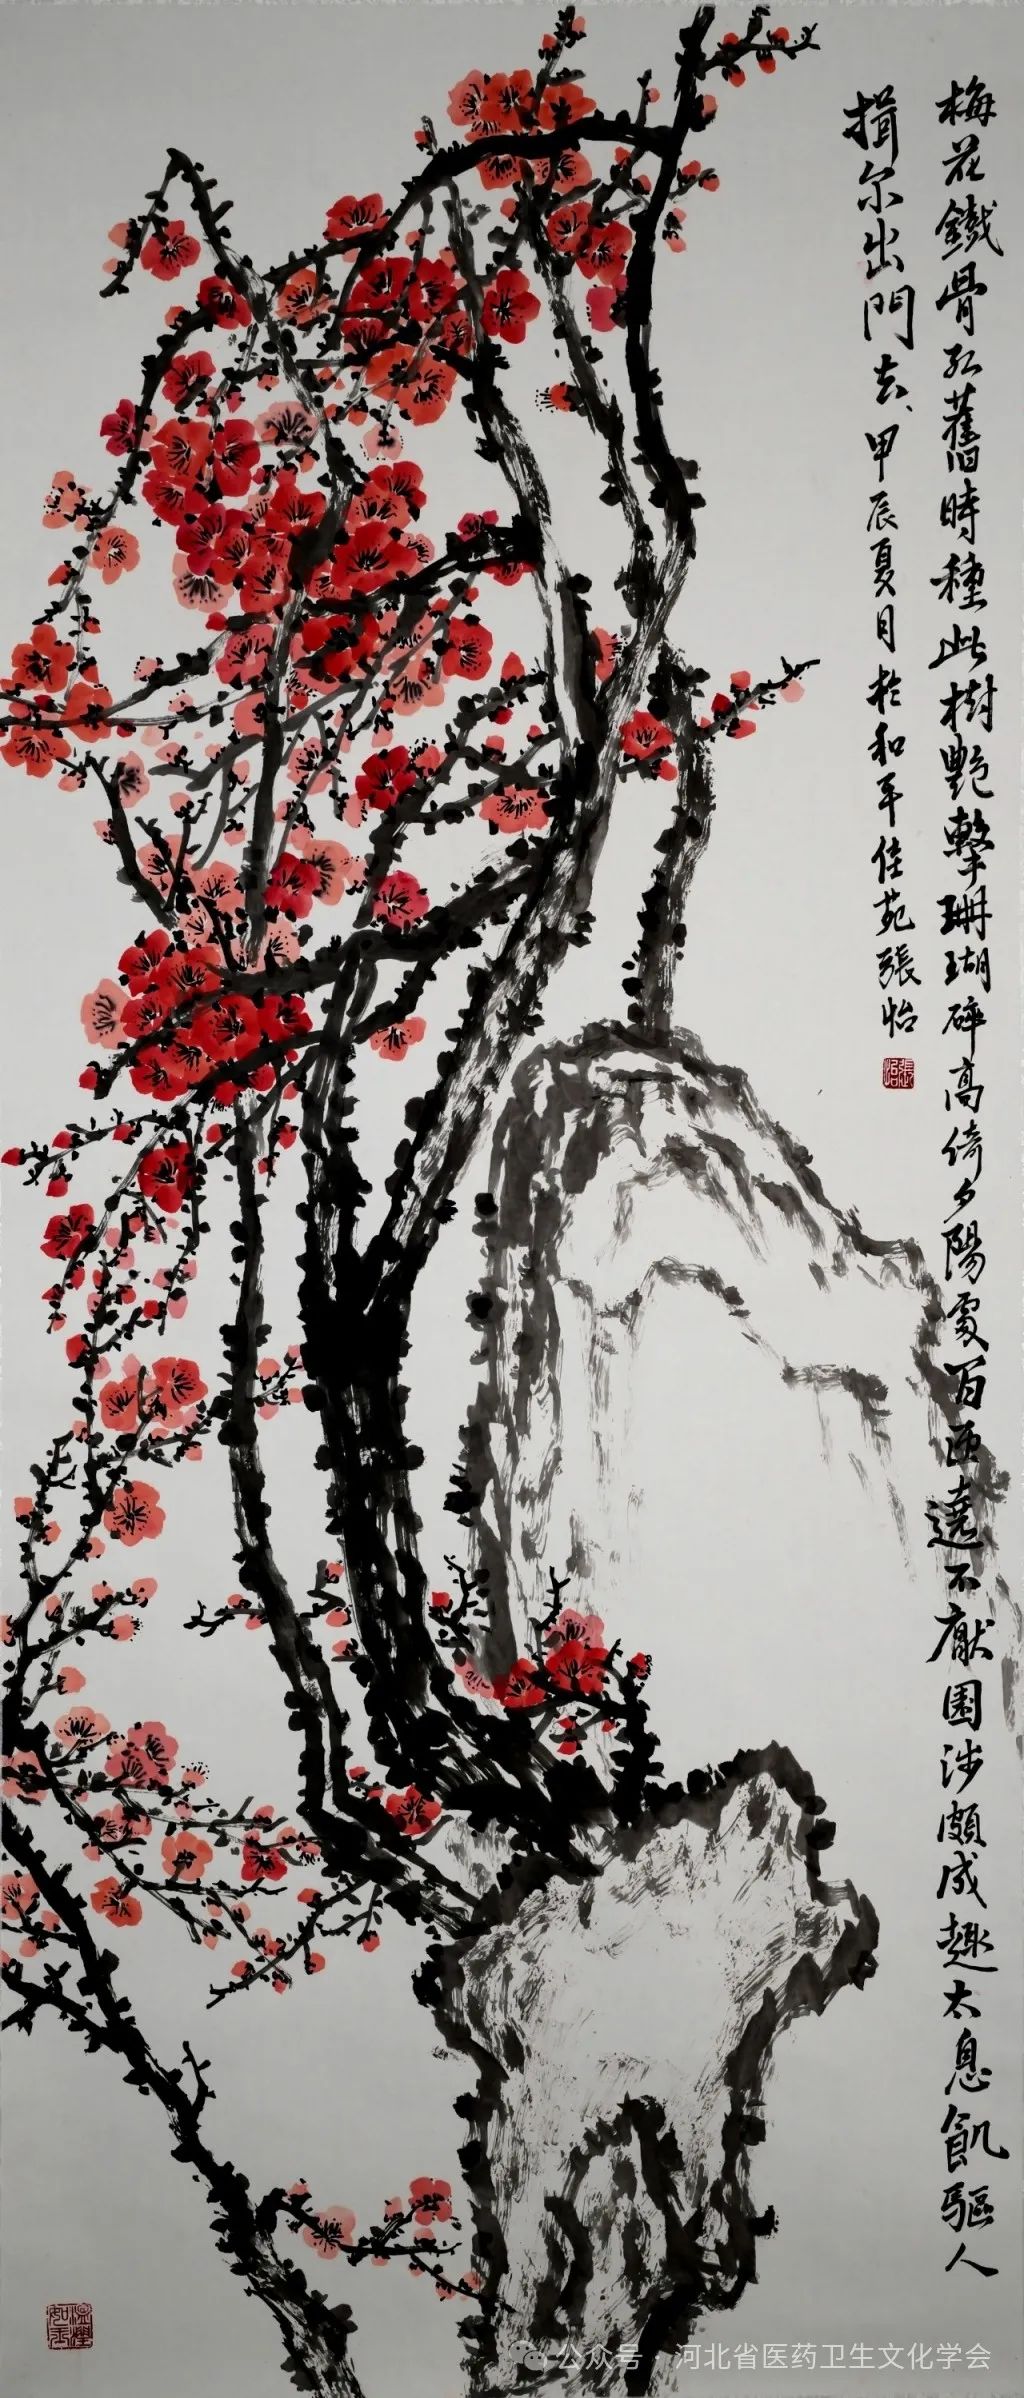 梅花鐵骨紅舊時種此樹艷擊珊瑚碎高倚夕陽處百匝遶不厭園涉頗成趣太息飢驅人
揖尔出門去、甲辰夏月於和平佳苑張怡
張怡
温潤如玉
公众号·河北省医药卫生文化学会